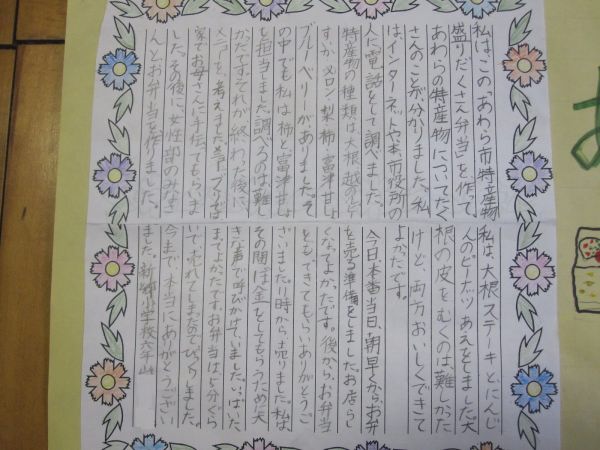 私は、この「あわら市特産物
盛りだくさん弁当」を作って、
あわらの特産物についてたく
さんのことが分かりました。私
は、インターネットや本、市役所の
人に電話をして調べました。
特産物の種類は、大根、越のルビー
すいか、メロン、梨、柿、富津甘しょ
ブルーベリーがありました。そ
の中でも私は柿と富津甘しょ
を担当しました。調べるのは、難し
かったです。それが終わった後に、
メニューを考えました。
家でお母さんに手伝ってもらいま
した。その後に、女性部のみなさ
んとお弁当を作りました。
私は、大根ステーキとにんじ
んのピーナッツあえをしました。大
根の皮をむくのは、難しかった
けど、両方おいしくできて
よかったです。
今日、本番当日、朝早くから、お弁
当を売る準備をしました。お店らし
くなってよかったです。後から、お弁当
もできてもらいありがとうご
ざいました。11時から売りました。私は
その間、ぼ金をしてもらうために大
きな声で呼びかけていました。いっぱい入
ってよかったです。お弁当は、5分ぐら
いで、売れてしまったのでびっくりしました。
今まで、本当にありがとうござい
ました。新郷小学校六年